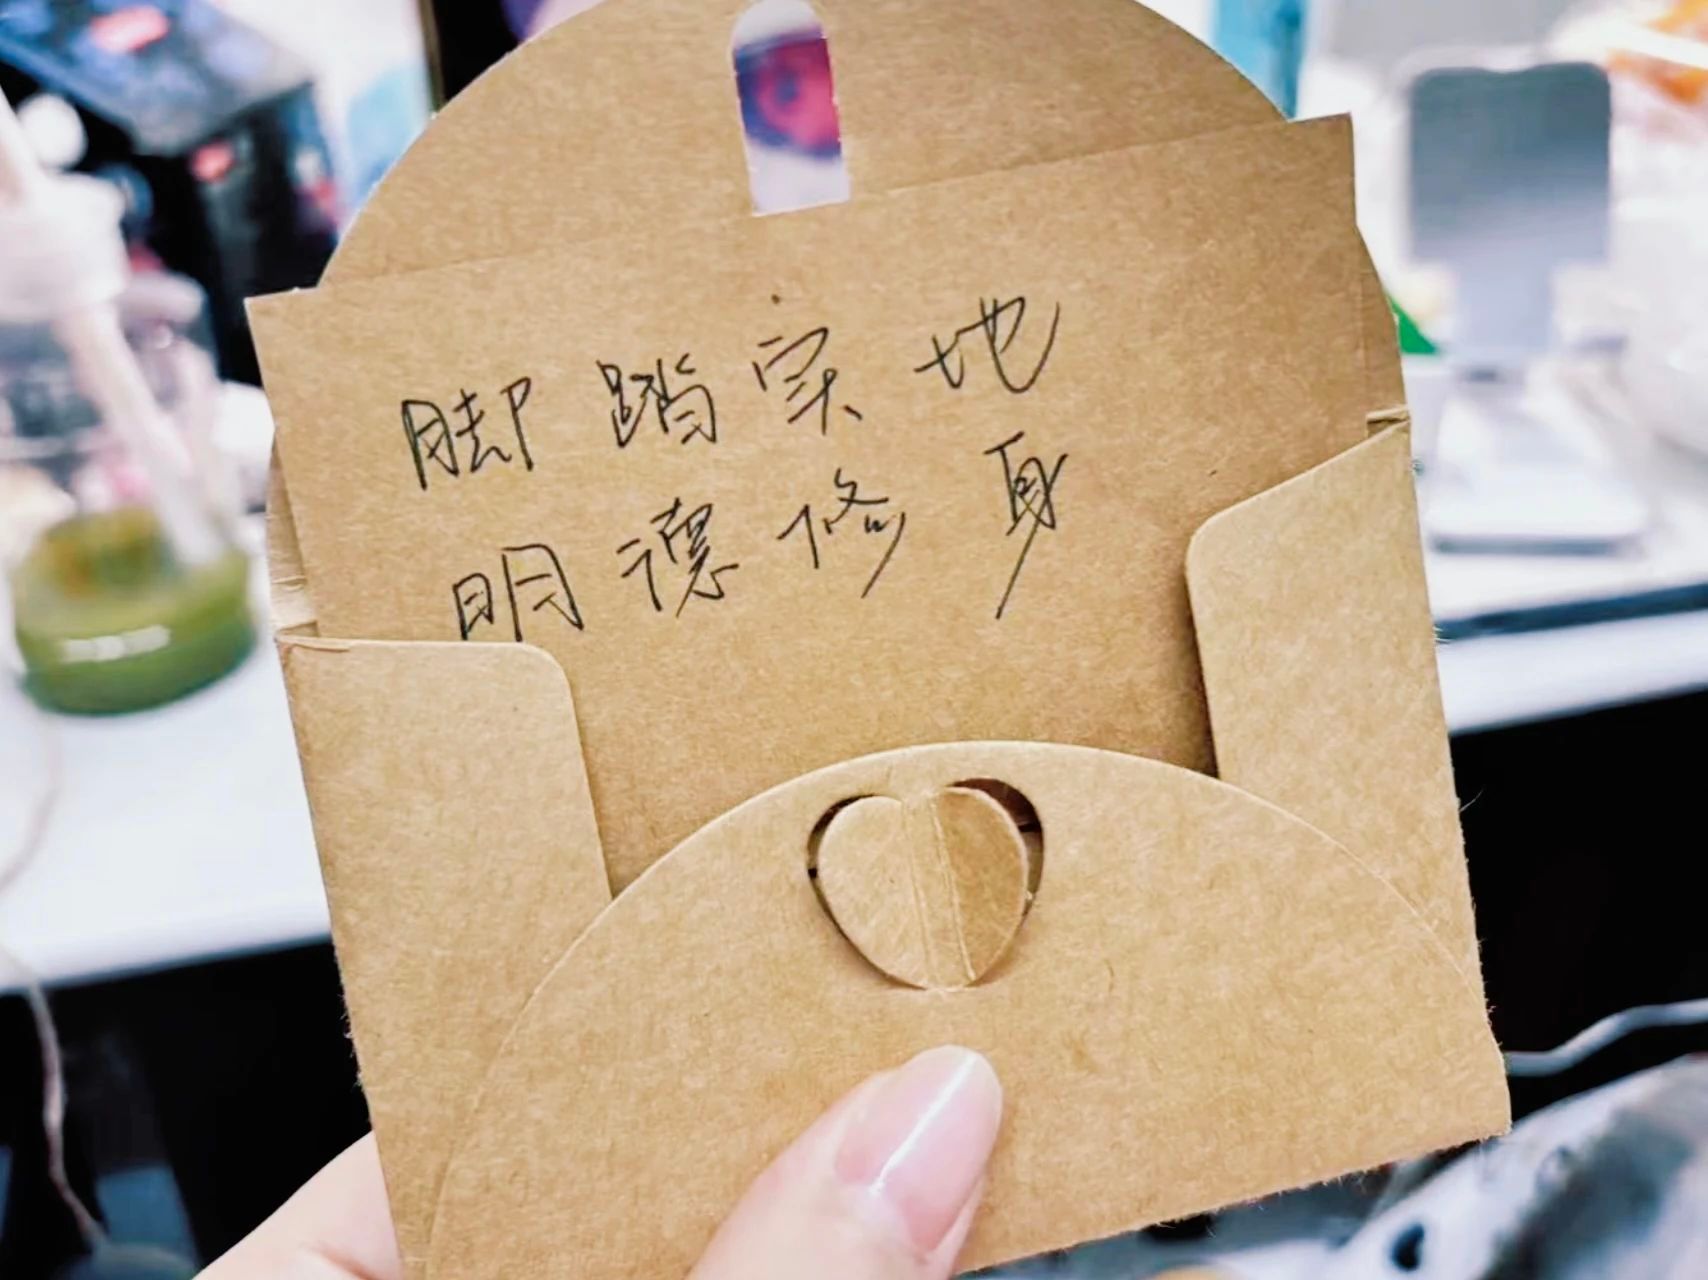 脚踏实地
明德修身